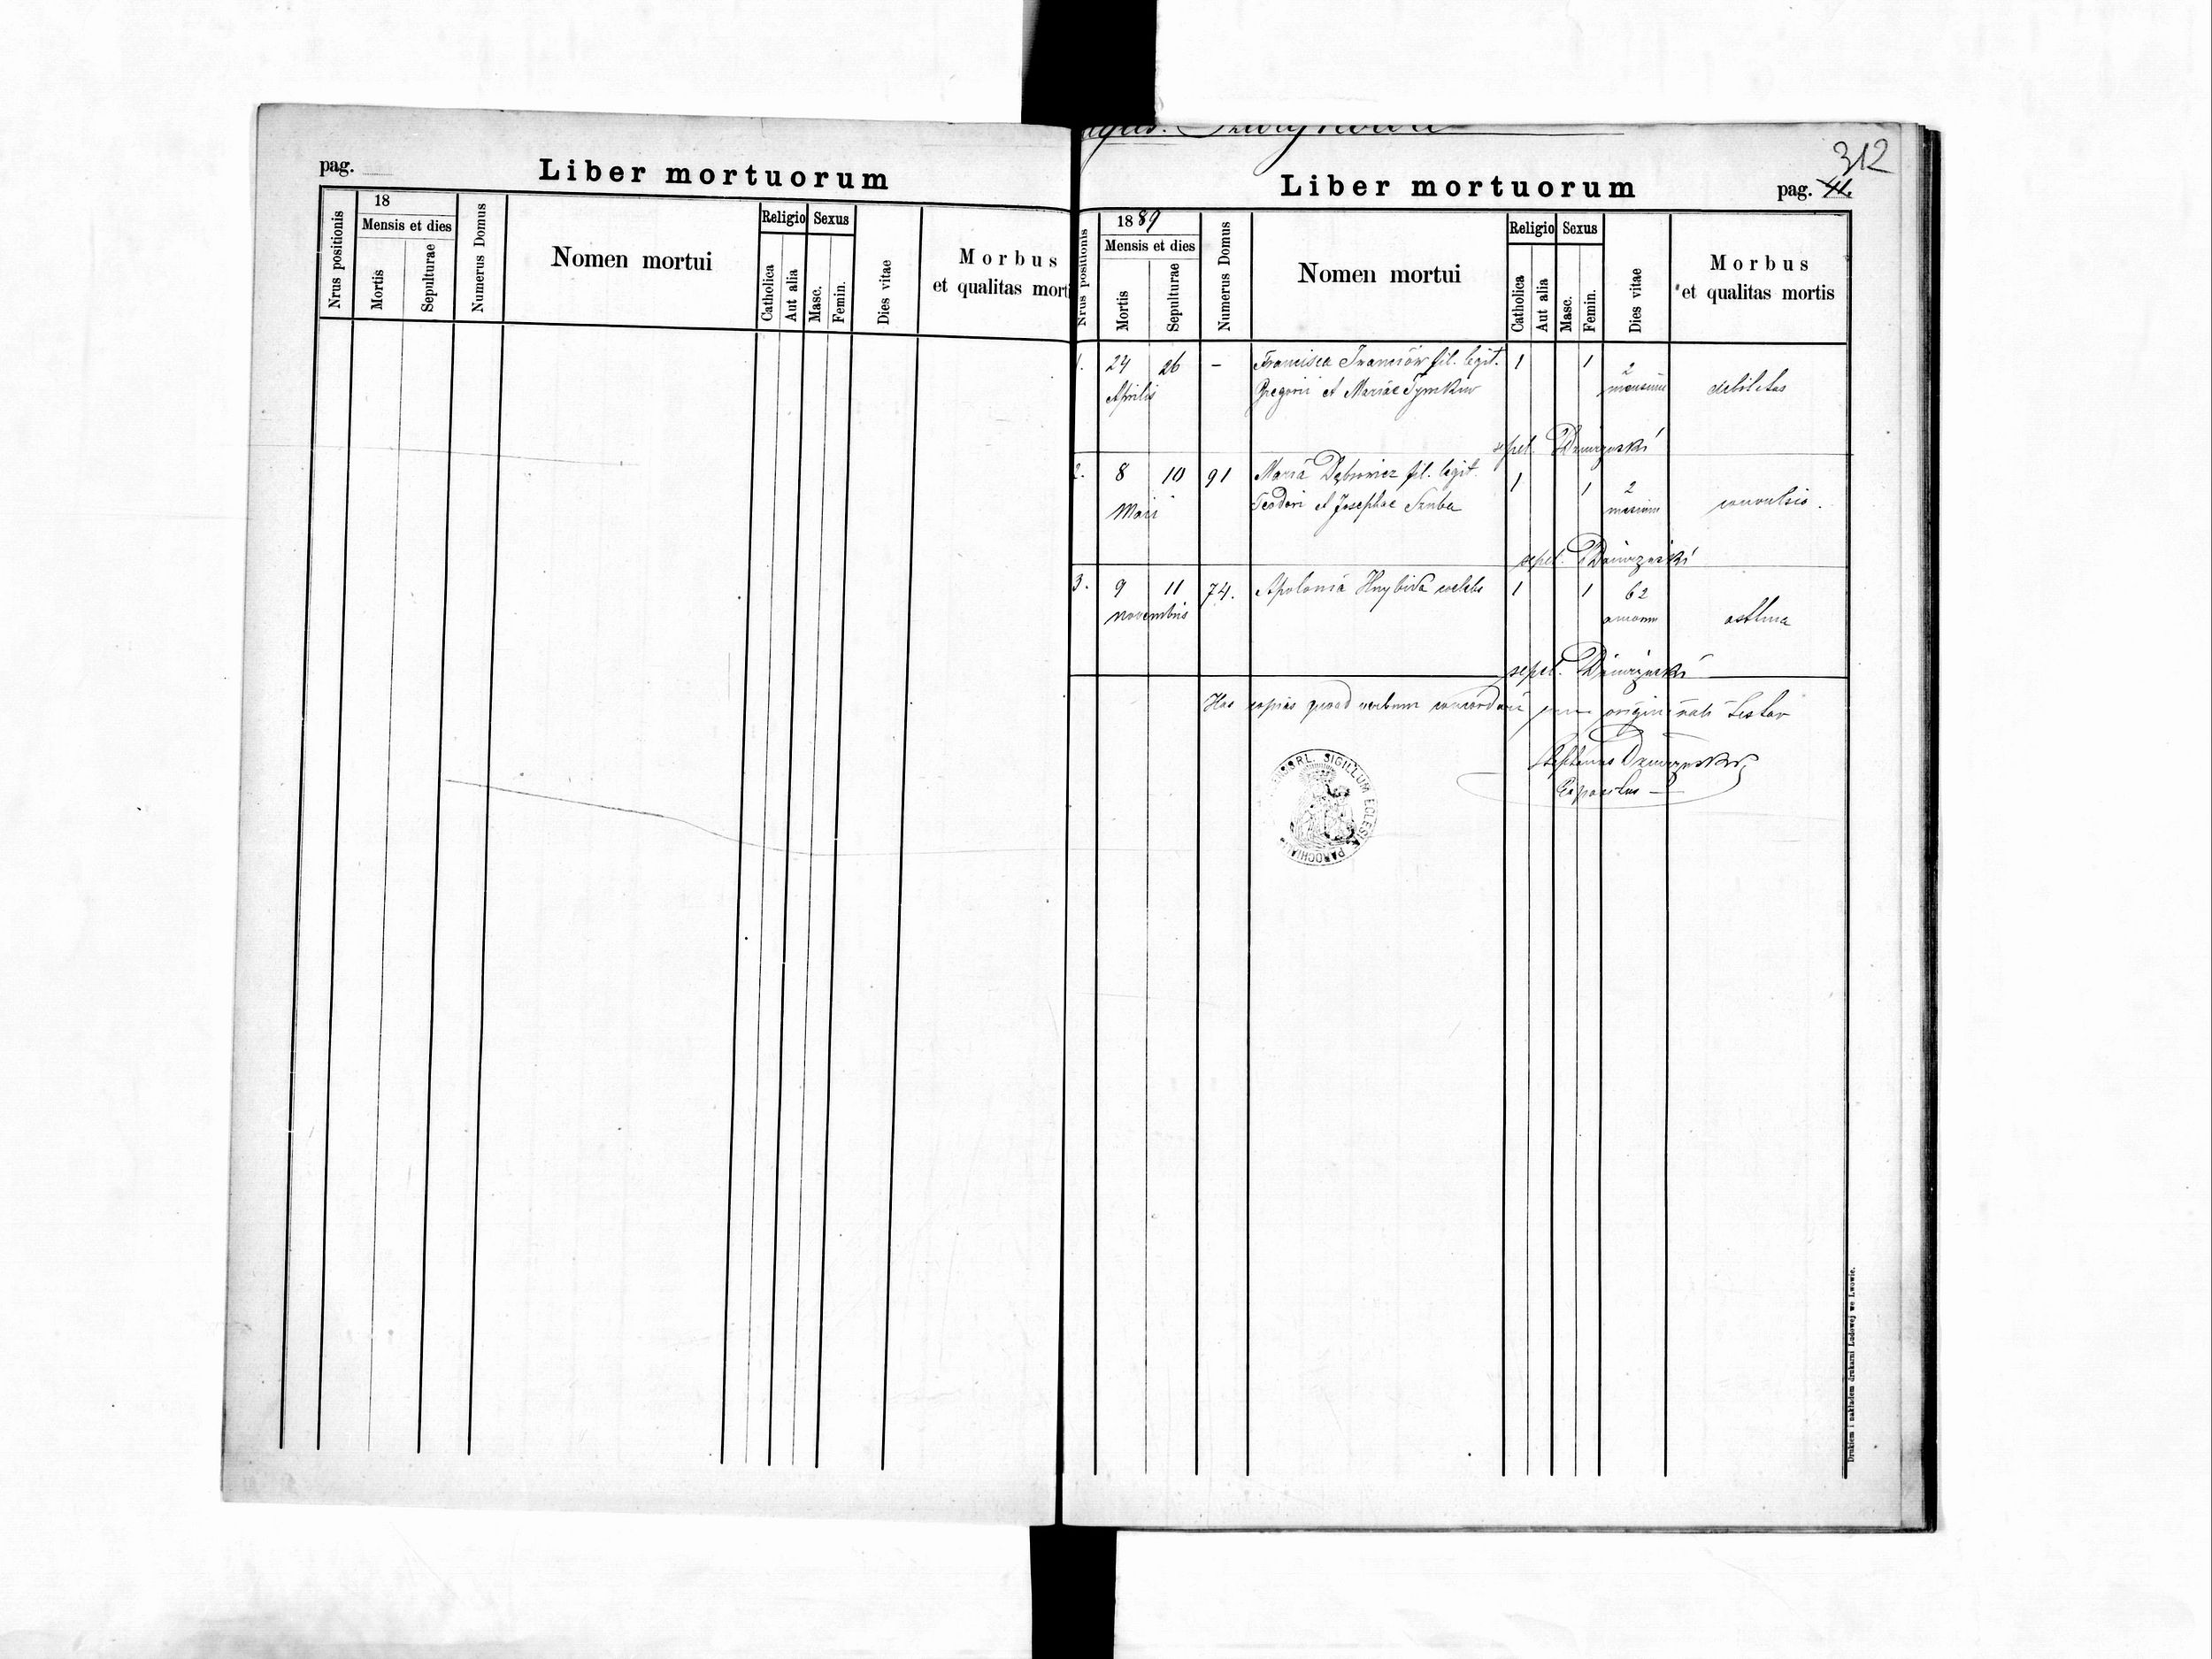 pag.
Liber mortuorum
Nrus positionis
18
Mensis et dies
Mortis
Sepulturae
Numerus Domus
Nomen mortui
Religio
Catholica
Aut alia
Sexus
Masc.
Femin.
Dies vitae
Morbus
et qualitas morti
312
Liber mortuorum
pag. 41.
Nrus positionis
1889
Mensis et dies
Mortis
Sepulturae
Numerus Domus
Nomen mortui
Religio
Catholica
Aut alia
Sexus
Masc.
Femin.
Dies vitae
Morbus
et qualitas mortis
1. 24 26 – Francisca Iwanciów fil. legit. 1 1 2
Aprilis Gregorii et Mariae Tymkiw mensium debilitas
sepel. Dziurzyński
2. 8 10 91 Maria Dąbrowicz fil. legit. 1 1 2
Maii Teodori et Josephae Szuba mensium convulsio.
sepel. Dziurzyński
3. 9 11 74. Apolonia Hnybida coelebs 1 1 62
novembris annorum asthma
sepel. Dziurzyński
Has copias quoad verbum concordare cum originali testor
Stephanus Dziurzyński
Expositus
SIGILLUM ECLESIAE PAROCHIAL
Drukiem i nakładem drukarni Ludowej we Lwowie.